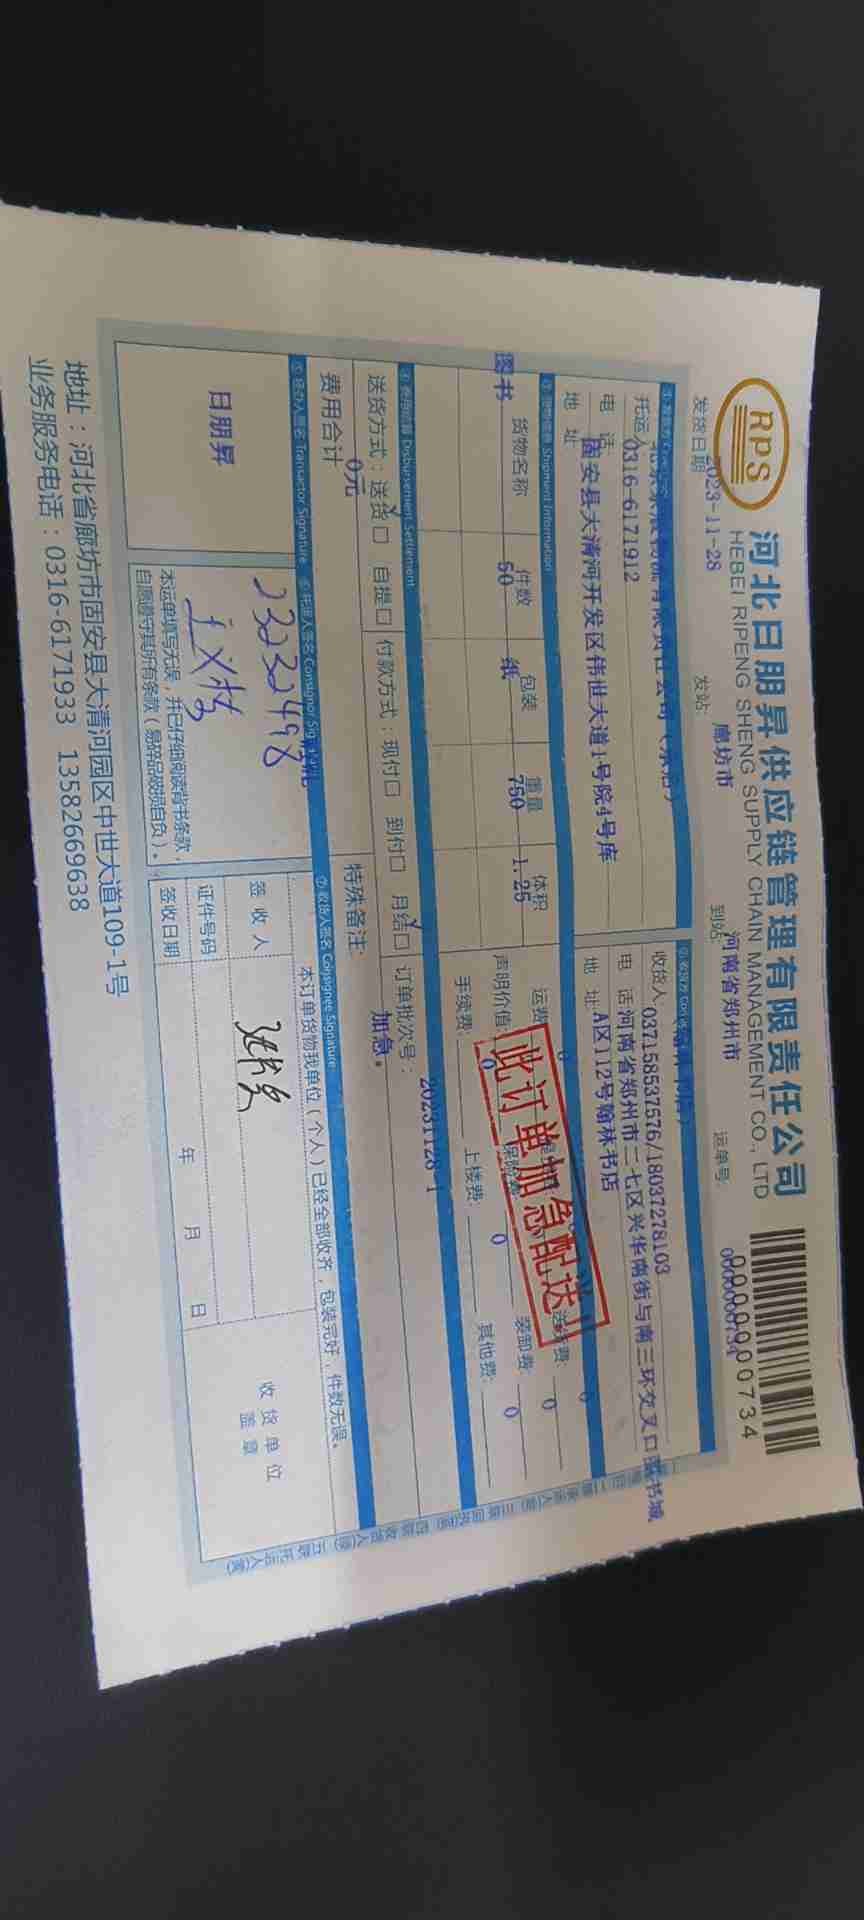 RPS
河北日朋昇供应链管理有限责任公司
HEBEI RIPENG SHENG SUPPLY CHAIN MANAGEMENT CO., LTD
0000000734
发货日期 2023-11-28 发站: 廊坊市 到站: 河南省郑州市 运单号: 0000000734
托运人
电 话 0316-6171912
地 址 固安县大清河开发区伟世大道1号院4号库
收货人
037158537576/18037278103
电 话 河南省郑州市二七区兴华南街与南三环交叉口图书城
地 址 A区112号翰林书店
③ 货物信息 Shipment Information
货物名称 件数 包装 重量 体积
图书 50 纸 750 1.25
运费: 0
送货费: 0
声明价值: 0 保险费: 0 装卸费: 0
手续费: 上楼费: 其他费:
此订单加急配送!
④ 费用结算 Disbursement Settlement
送货方式: 送货□ 自提□ 付款方式: 现付□ 到付□ 月结□ 订单批次号: 20231128-1
费用合计 0元
特殊备注: 加急。
⑤ 经办人签名 Transactor Signature
⑥ 托运人签名 Consignor Signature
⑦ 收货人签名 Consignee Signature
日朋昇
2323498
本运单填写无误，并已仔细阅读背书条款，
自愿遵守其所有条款(易碎品破损自负)。
本订单货物我单位(个人)已经全部收齐，包装完好，件数无误。
签 收 人
证件号码
签收日期 年 月 日
收 货 单 位
盖 章
地址：河北省廊坊市固安县大清河园区中世大道109-1号
业务服务电话：0316-6171933 13582669638